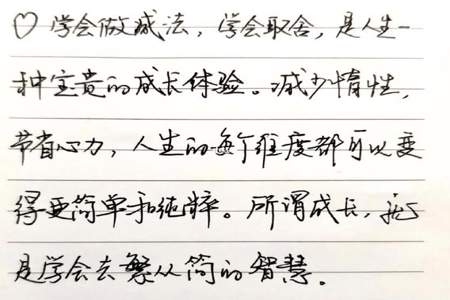 ♡学会做减法，学会取舍，是人生一
种宝贵的成长体验。减少惰性，
节省心力，人生的每个维度都可以变
得更简单和纯粹。所谓成长，就
是学会去繁从简的智慧。